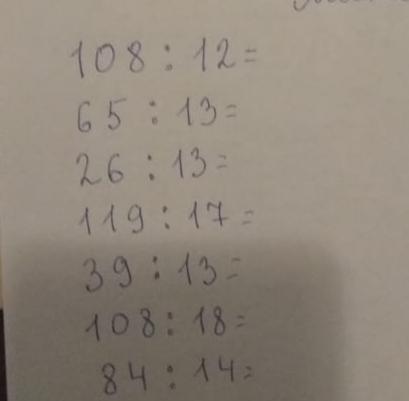 108 : 12 =
65 : 13 =
26 : 13 =
119 : 17 =
39 : 13 =
108 : 18 =
84 : 14 =